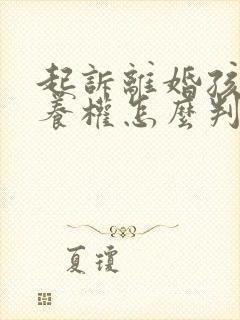 起訴離婚孩
養權怎麼判
夏瓊